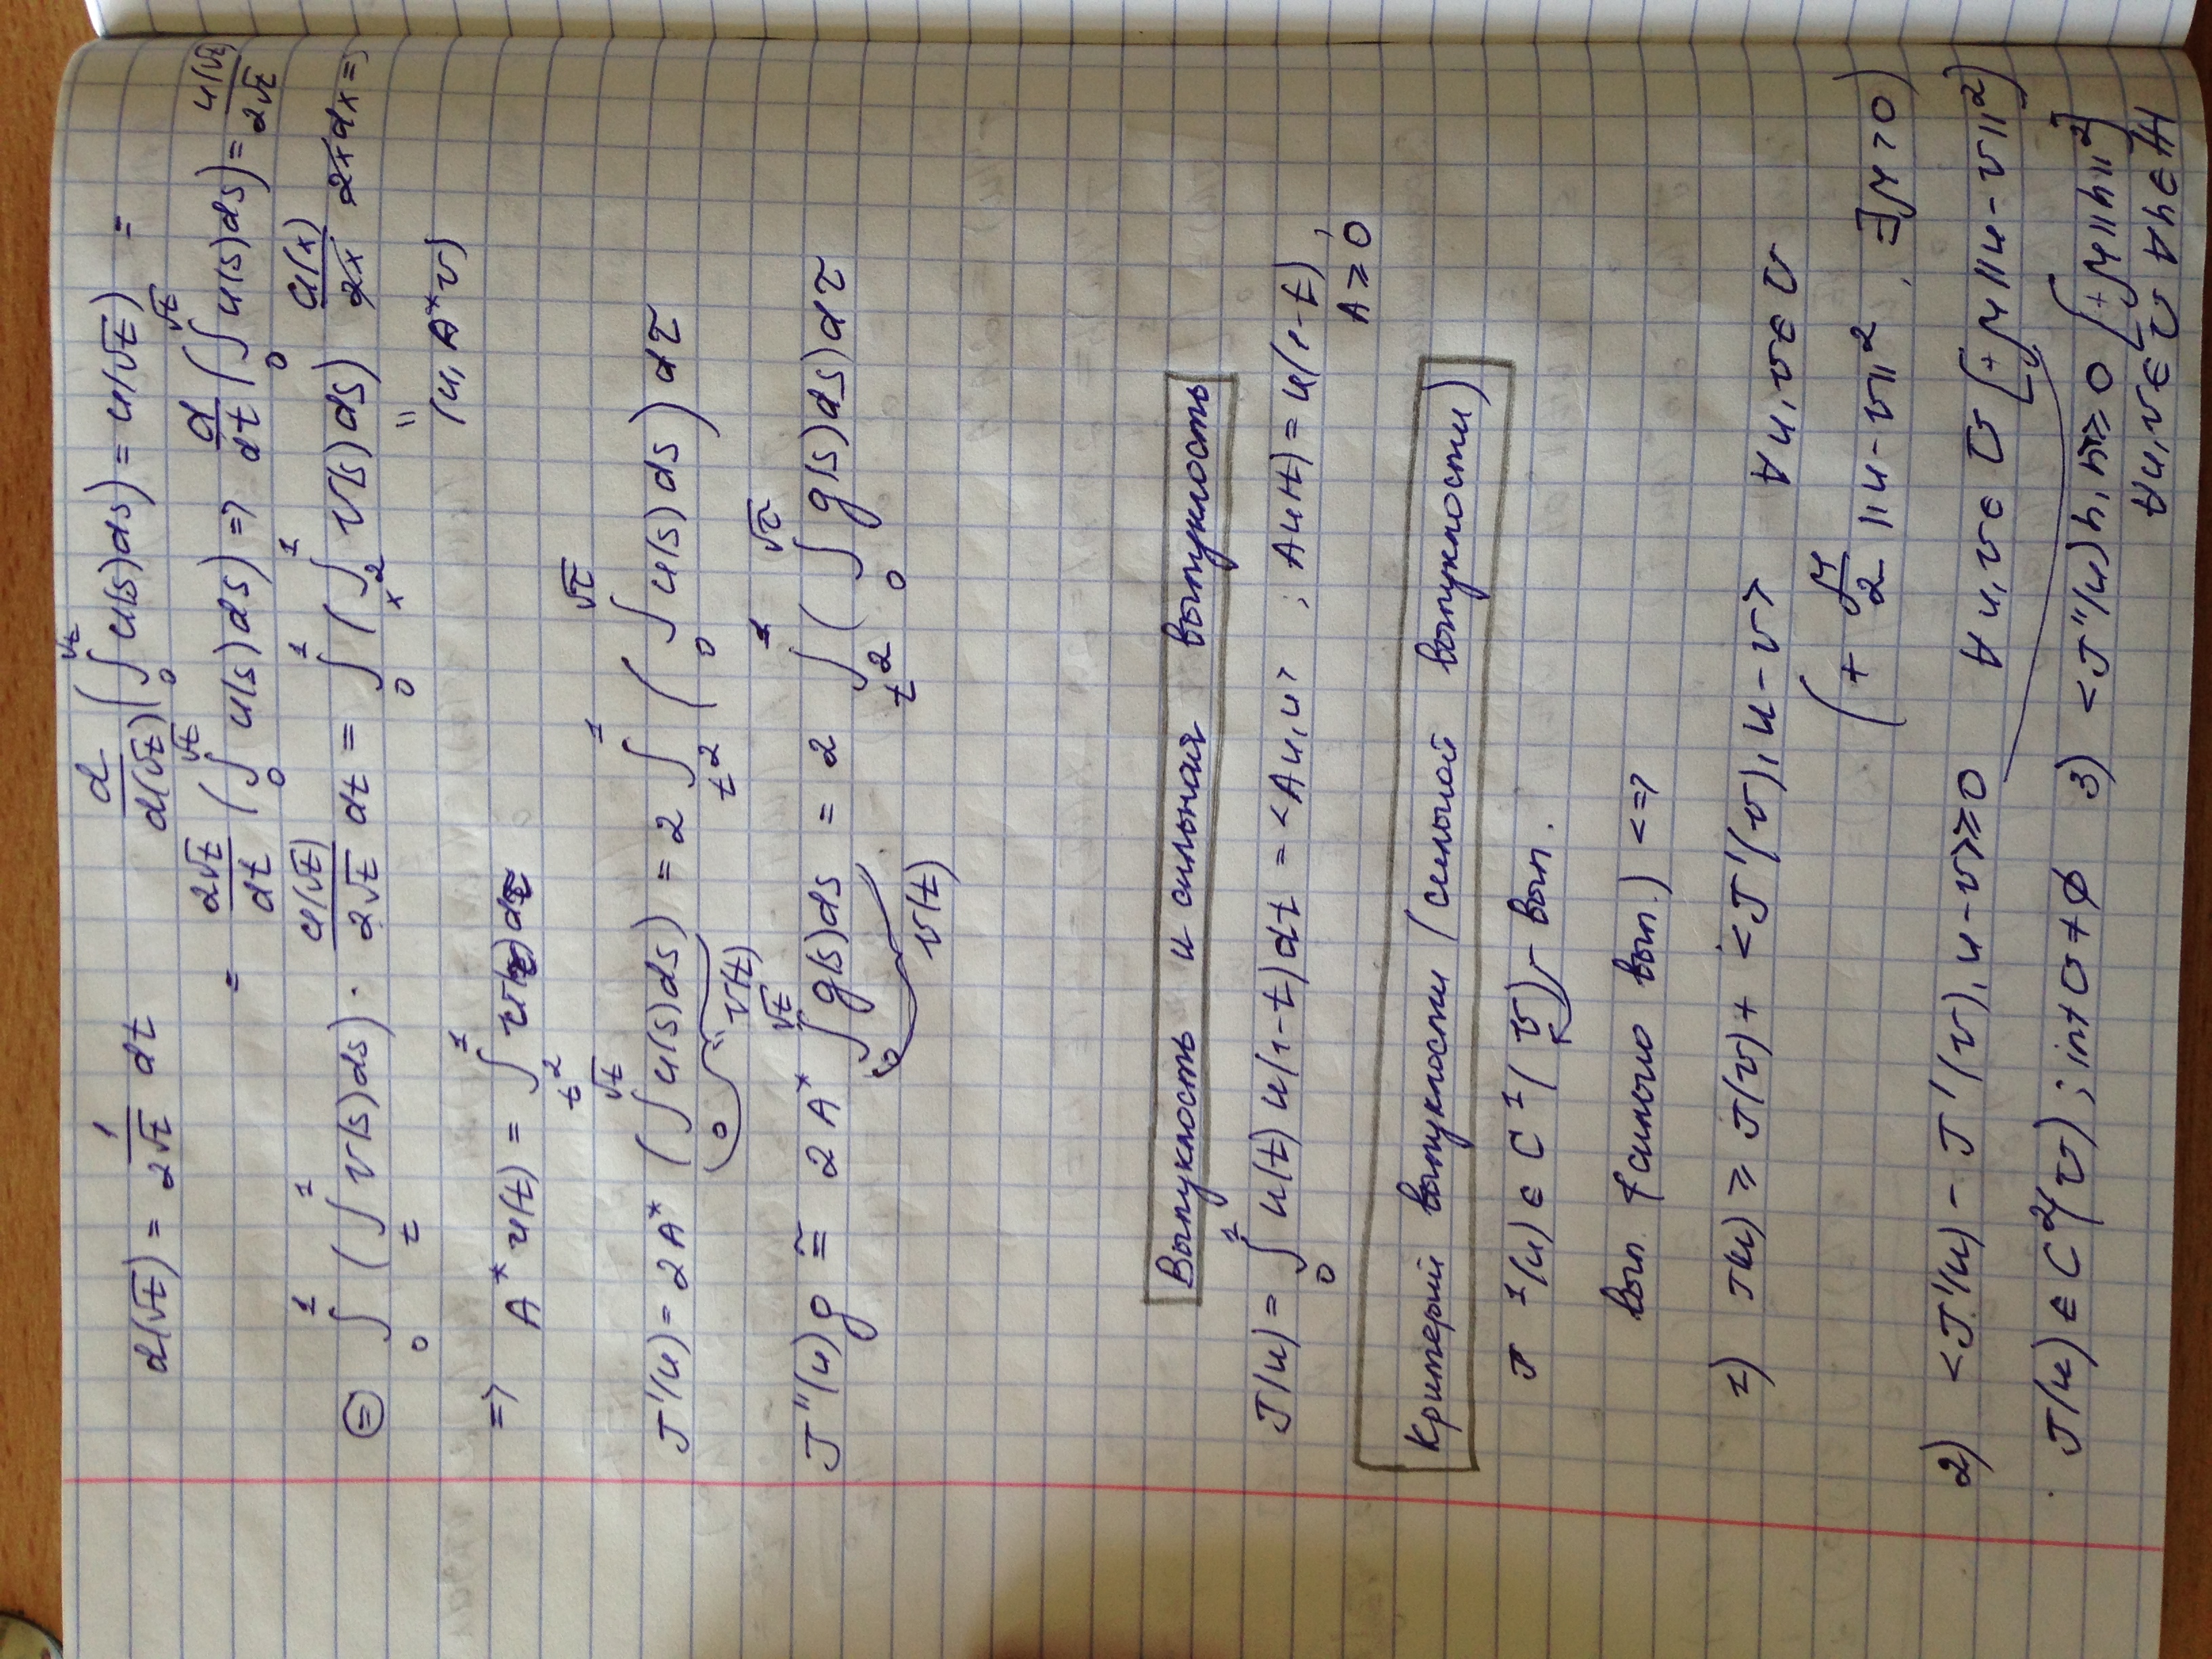 d(√t) = 1/(2√t) dt   d/d(√t) (∫₀^√t u(s)ds) = u(√t) =
= 2√t/dt (∫₀^√t u(s)ds) => d/dt (∫₀^√t u(s)ds) = u(√t)/(2√t)
⊜ ∫₀¹ (∫ₜ¹ v(s)ds) · u(√t)/(2√t) dt = ∫₀¹ (∫_{x²}¹ v(s)ds) u(x)/(2x) 2x dx =
" (u, A*v)
=> A* u(t) = ∫_{t²}¹ u(τ)dτ
J'(u) = 2A* (∫₀^√t u(s)ds) = 2 ∫_{t²}¹ (∫₀^√τ u(s)ds) dτ
" v(t)
J''(u)g ≅ 2A* ∫₀^√t g(s)ds = 2 ∫_{t²}¹ (∫₀^√τ g(s)ds) dτ
v(t)
Выпуклость и сильная выпуклость
J(u) = ∫₀¹ u(t)u(1-t)dt = <Au,u> ; Au(t) = u(1-t),
A ≥ 0
Критерий выпуклости (сильной выпуклости)
J(u) ∈ C¹(U) - вып.
вып. (сильно вып.) <=>
1) J(u) ≥ J(v) + <J'(v), u-v> ∀ u,v ∈ U
(+ μ/2 ||u-v||², ∃μ>0)
2) <J'(u) - J'(v), u-v> ≥ 0 ∀ u,v ∈ U [+ μ||u-v||²]
J(u) ∈ C²(U); int U ≠ ∅ 3) <J''(u)h,h> ≥ 0 [+ μ||h||²]
∀u,v ∈ U ∀h ∈ H